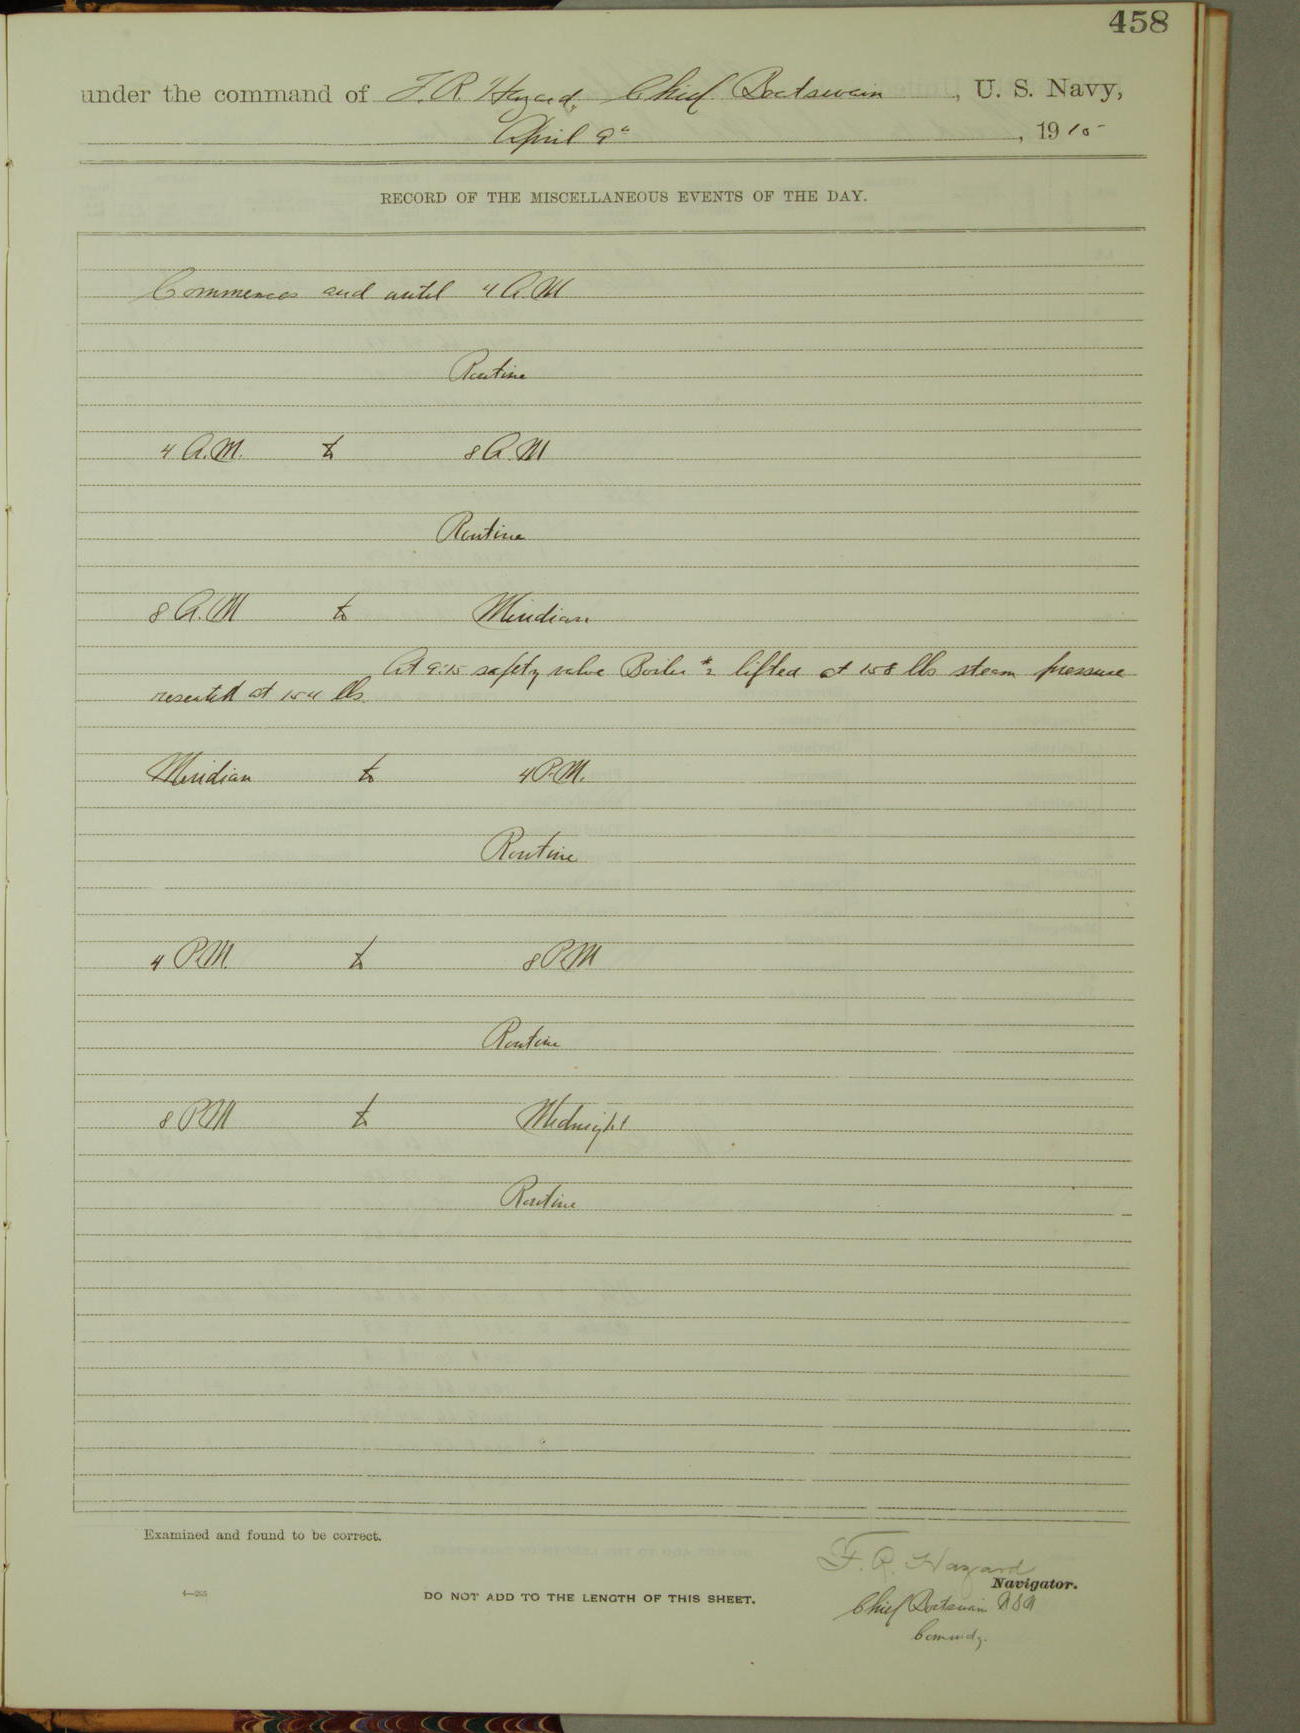 458
under the command of F. R. Hazard, Chief Boatswain, U. S. Navy,
April 9", 1910
RECORD OF THE MISCELLANEOUS EVENTS OF THE DAY.
Commences and until 4 A.M
Routine
4 A.M. to 8 A.M
Routine
8 A.M to Meridian
At 9:15 safety valve Boiler #2 lifted at 158 lbs steam pressure
reseated at 154 lbs.
Meridian to 4 P.M.
Routine
4 P.M. to 8 P.M
Routine
8 P.M to Midnight
Routine
Examined and found to be correct.
F. R. Hazard
Navigator.
4—265
DO NOT ADD TO THE LENGTH OF THIS SHEET.
Chief Boatswain U S N
Commdg.